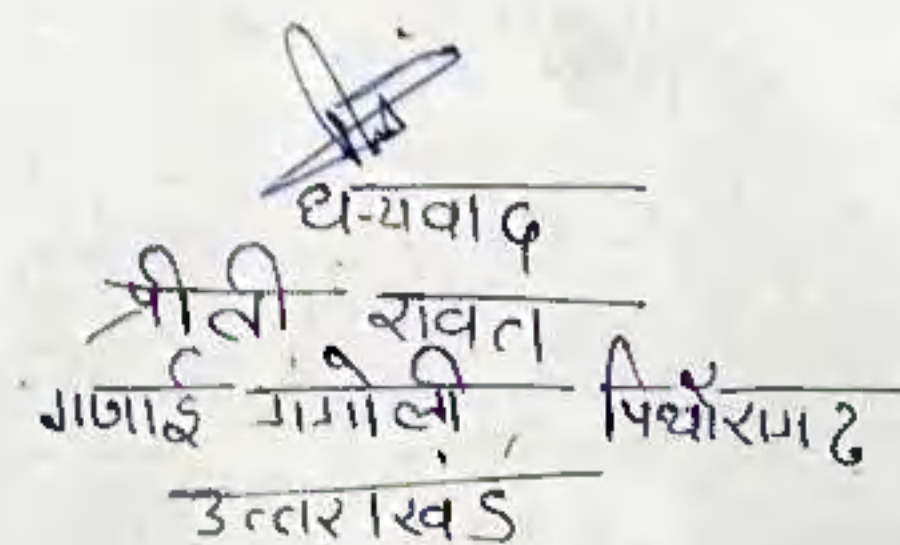 धन्यवाद
प्रीती रावत
गणाई गंगोली पिथौरागढ
उत्तराखंड